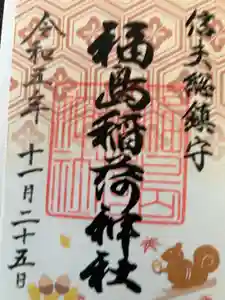 信夫総鎮守
福島稲荷神社
令和五年
十一月二十五日